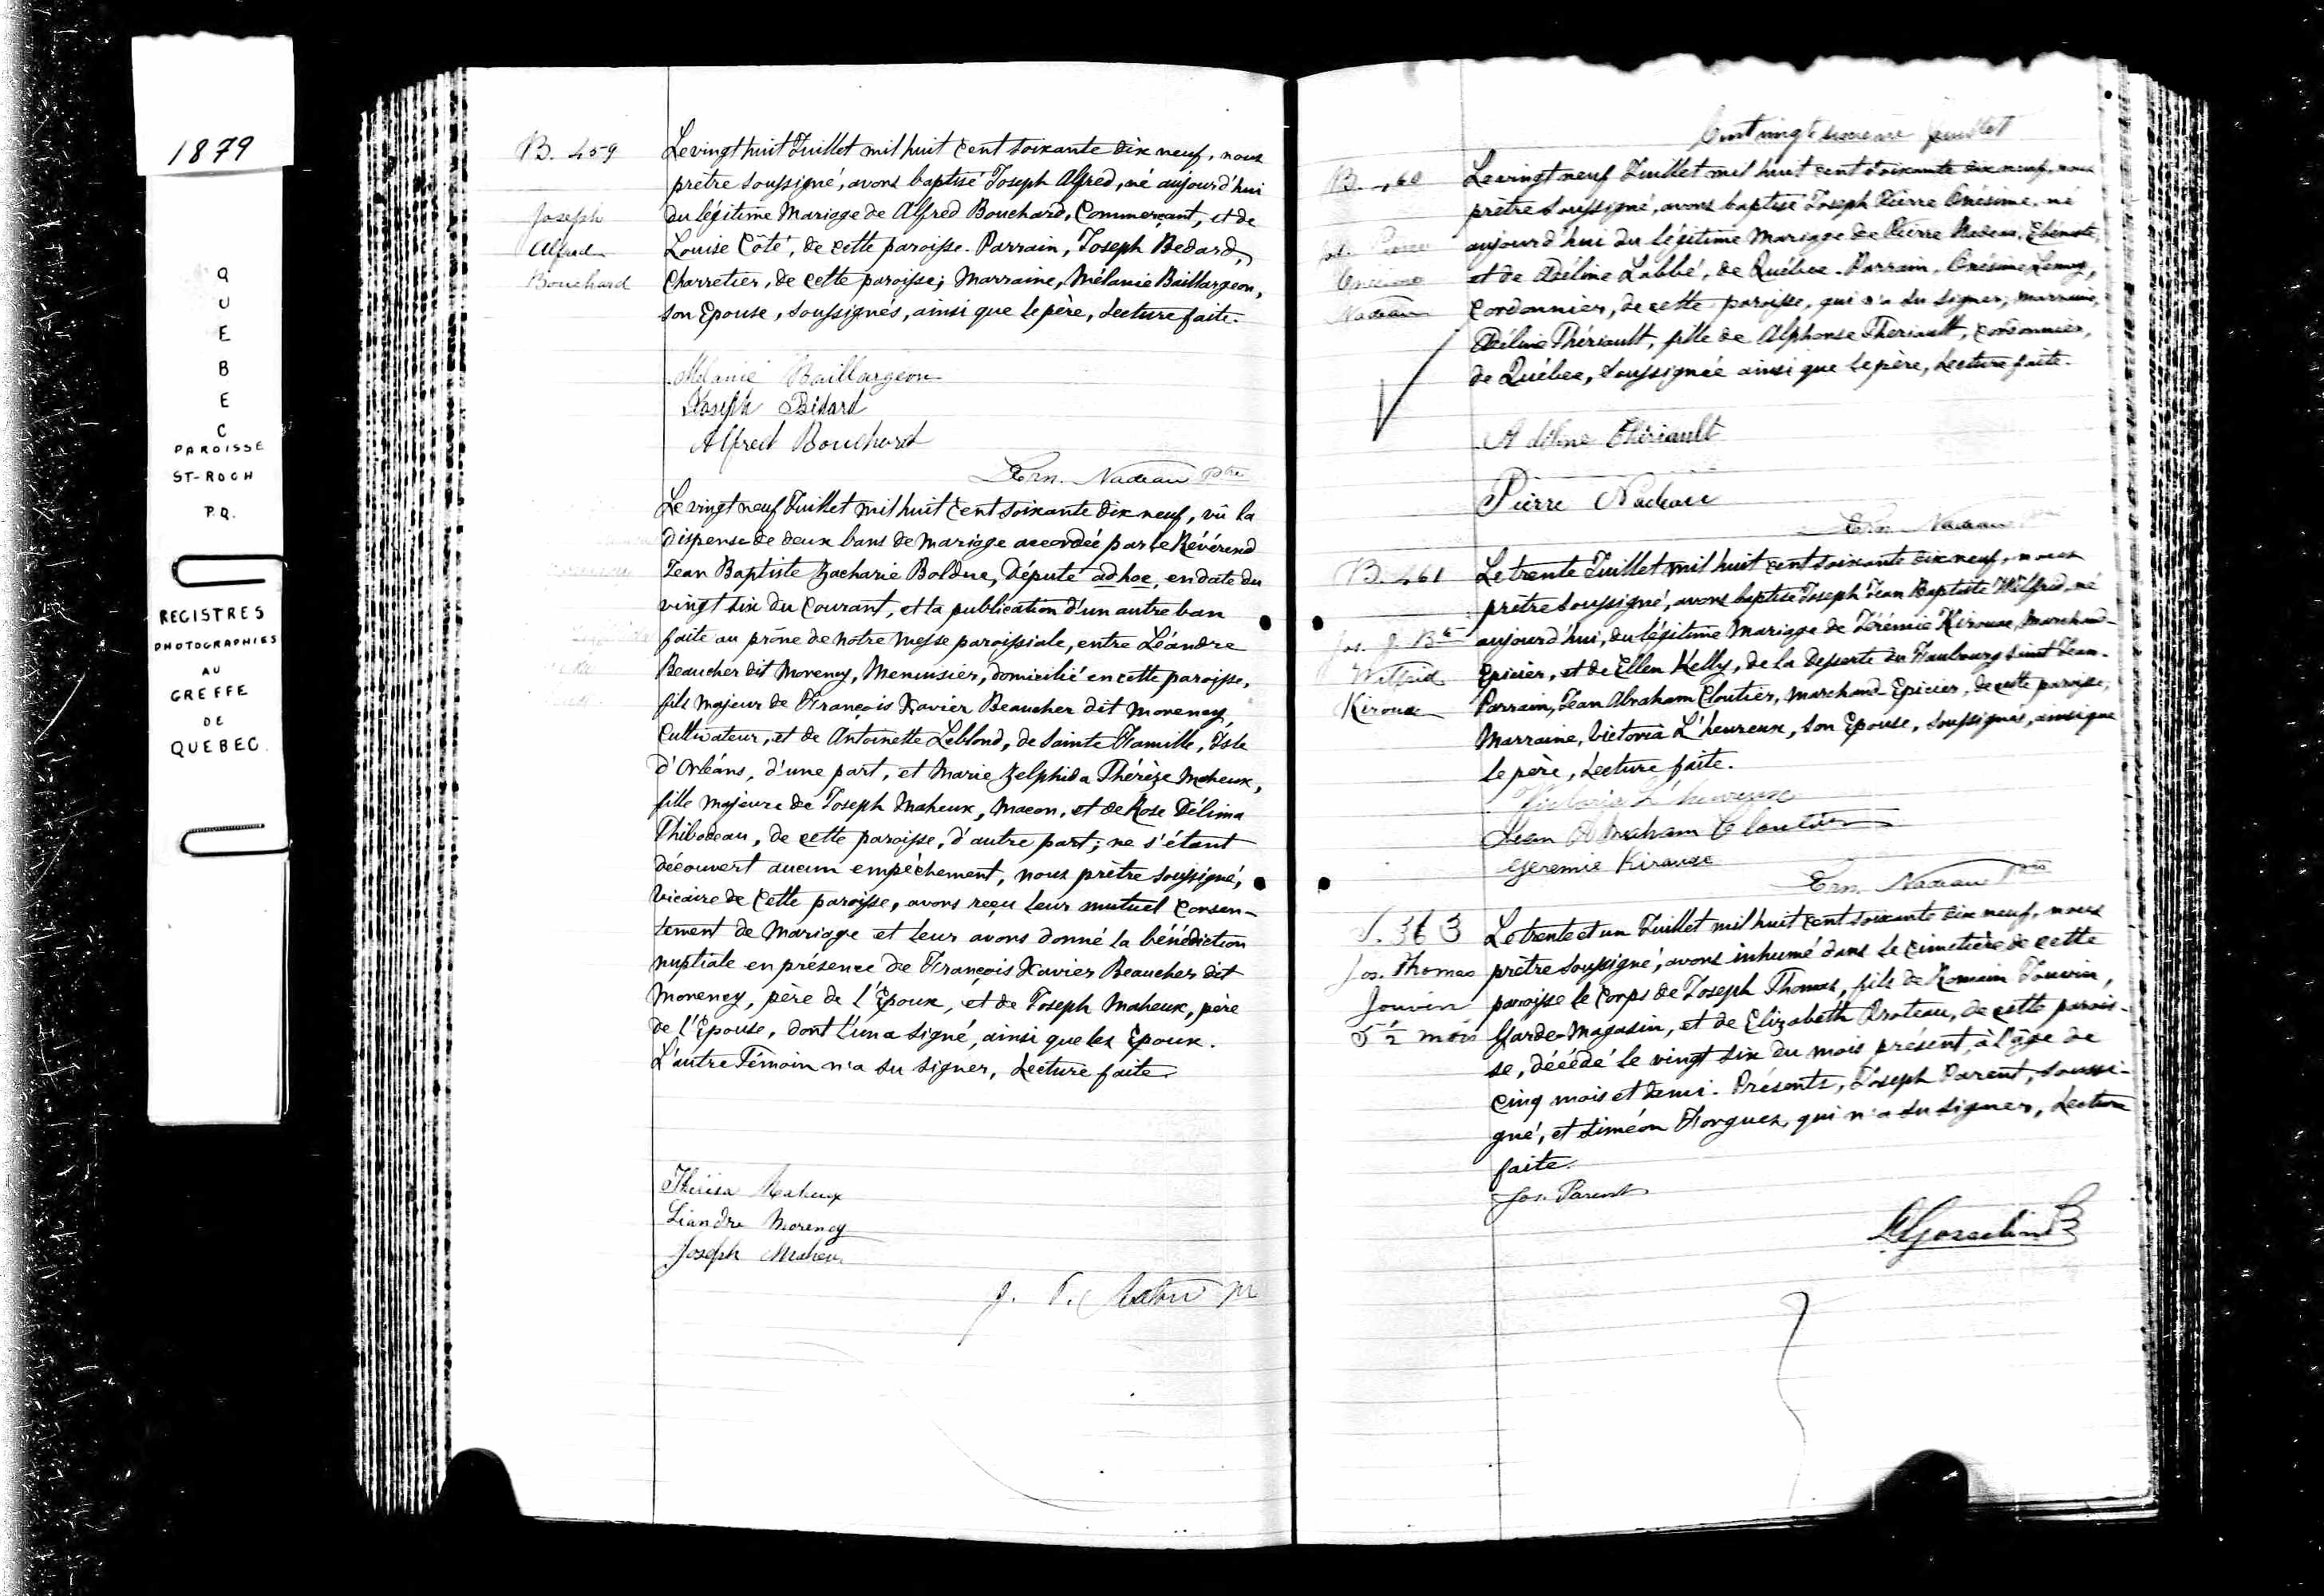 1879
Q
U
E
B
E
C
PAROISSE
ST-ROCH
P.Q.
REGISTRES
PHOTOGRAPHIES
AU
GREFFE
DE
QUEBEC.
B. 459
Joseph
Alfred
Bouchard
Le vingt huit Juillet mil huit cent soixante dix neuf, nous
prêtre soussigné, avons baptisé Joseph Alfred, né aujourd'hui
du légitime Mariage de Alfred Bouchard, Commerçant, et de
Louise Côté, de cette paroisse. Parrain, Joseph Bedard,
Charretier, de cette paroisse; Marraine, Mélanie Baillargeon,
son Epouse, soussignés, ainsi que le père, Lecture faite.
Mélanie Baillargeon
Joseph Bédard
Alfred Bouchard
Ern. Nadeau Ptre
Le vingt neuf Juillet mil huit cent soixante dix neuf, vû la
dispense de deux bans de Mariage accordée par le Révérend
Jean Baptiste Zacharie Bolduc, Député ad hoc, en date du
vingt six du Courant, et la publication d'un autre ban
faite au prône de notre Messe paroissiale, entre Léandre
Beaucher dit Morency, Menuisier, domicilié en cette paroisse,
fils Majeur de François Xavier Beaucher dit Morency,
Cultivateur, et de Antoinette Leblond, de Sainte Famille, Isle
d'Orléans, d'une part, et Marie Zelphida Thérèze Maheux,
fille Majeure de Joseph Maheux, Macon, et de Rose Délima
Thibodeau, de cette paroisse, d'autre part; ne s'étant
découvert aucun empêchement, nous prêtre soussigné,
Vicaire de Cette paroisse, avons reçu leur mutuel Consen-
tement de Mariage et leur avons donné la bénédiction
nuptiale en présence de François Xavier Beaucher dit
Morency, père de l'Epoux, et de Joseph Maheux, père
de l'Epouse, dont l'un a signé, ainsi que les Epoux.
L'autre Témoin n'a su signer, Lecture faite.
Thérèsa Maheux
Léandre Morency
Joseph Maheu
Cent vingt sixieme feuillet
B. 460
Jos. Pierre
Onésime
Nadeau
Le vingt neuf Juillet mil huit cent soixante dix neuf, nous
prêtre soussigné, avons baptisé Joseph Pierre Onésime, né
aujourd'hui du légitime Mariage de Pierre Nadeau, Ebéniste,
et de Adéline Labbé, de Québec. Parrain, Onésime Lemay,
Cordonnier, de cette paroisse, qui n'a su signer; Marraine,
Adéline Thériault, fille de Alphonse Thériault, Cordonnier,
de Québec, soussignée ainsi que le père, Lecture faite.
Adéline Thériault
Pierre Nadeau
Ern. Nadeau Ptre
B. 461
Jos. J. Bte
Wilfrid
Kirouac
Le trente Juillet mil huit cent soixante dix neuf, nous
prêtre soussigné, avons baptisé Joseph Jean Baptiste Wilfred, né
aujourd'hui, du légitime Mariage de Jérémie Kirouac, Marchand-
Epicier, et de Ellen Kelly, de la Desserte du Faubourg Saint Jean.
Parrain, Jean Abraham Cloutier, Marchand-Epicier, de cette paroisse;
Marraine, Victoria L'heureux, son Epouse, soussignés, ainsi que
le père, Lecture faite.
Victoria L'heureux
Jean Abraham Cloutier
Jeremie Kirouac
Ern. Nadeau Ptre
S. 363
Jos. Thomas
Jouvin
5 1/2 mois
Le trente et un Juillet mil huit cent soixante dix neuf, nous
prêtre soussigné, avons inhumé dans le Cimetière de cette
paroisse le Corps de Joseph Thomas, fils de Romain Jouvin,
Garde-Magasin, et de Elizabeth Proteau, de cette parois-
se, décédé le vingt six du mois présent, à l'âge de
Cinq mois et demi. Présents, Joseph Parent, soussi-
gné, et Siméon Forgues, qui n'a su signer, Lecture
faite.
Jos. Parent
Gosselin